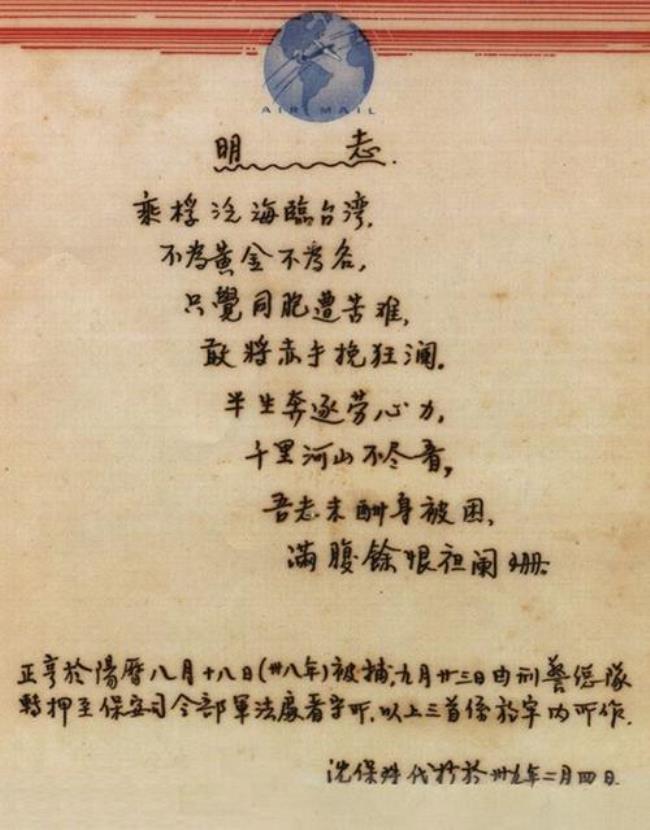 AIR MAIL
明 志.
乘桴泛海臨台湾,
不為黃金不為名,
只覺同胞遭苦难,
敢將赤手挽狂澜.
半生奔逐劳心力,
千里河山不尽看,
吾志未酬身被困,
滿腹餘恨袒阑珊.
正亨於陽曆八月十八日(卅八年)被捕,九月廿三日由刑警總隊
轉押至保安司令部軍法處看守所.以上三首係於字內所作.
沈保珠代抄於卅九年二月四日.